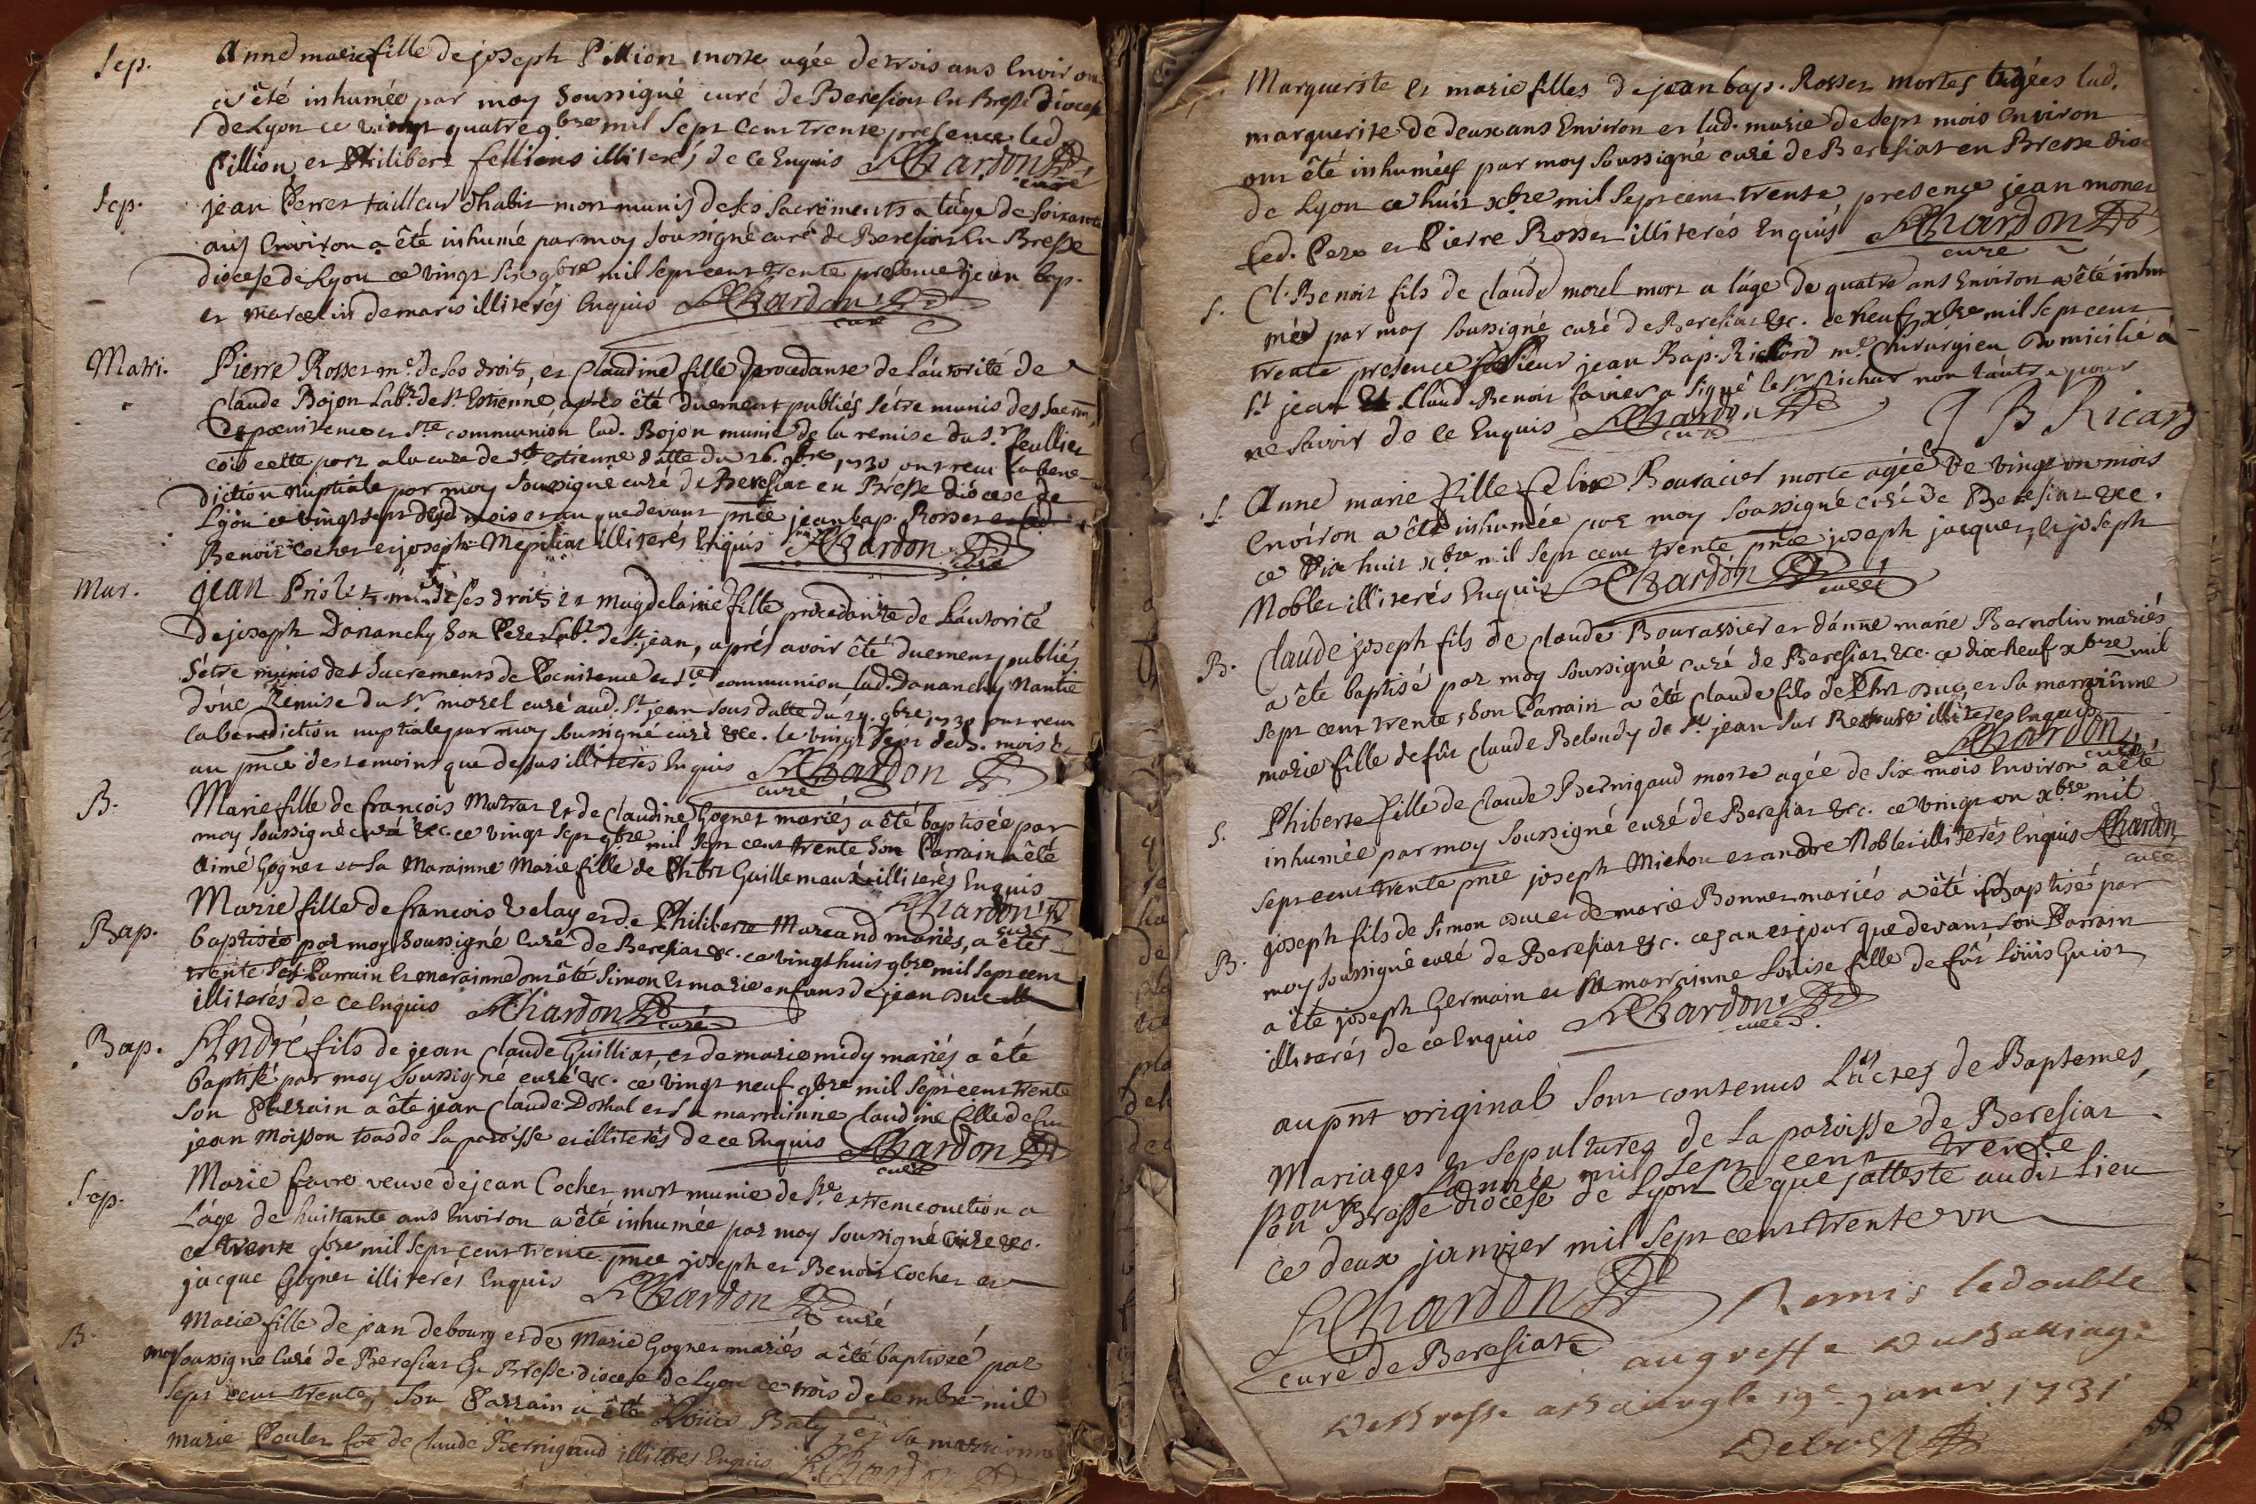 Sep. Anne marie fille de joseph Pillion morte agée de trois ans Environ
a été inhumée par moy soussigné curé de Beresiat en Bresse diocese
de Lyon ce vingt quatre 9bre mil sept cent trente presence led.
Pillion et Philibert illiterés de ce Enquis Chardon
curé
Sep. jean Perret tailleur d'habit mort munis de ses sacrements a lage de soixante
ans Environ a été inhumé par moy soussigné curé de Beresiat En Bresse
diocese de Lyon ce vingt six 9bre mil sept cent trente presence jean bap.
et marcelin demaris illiterés Enquis Chardon
curé
Matri. Pierre Rosset me. de ses droits, et Claudine fille procedante de l'autorité de
Claude Bojon Labr. de st Estienne, aprés été duement publiés s'étre munis des sacrm.
de poenitence et ste communion lad. Bojon munie de la remise du sr. feullier
a la cure de st estienne datte du 26. 9bre 1730 ont receu la bene-
diction nuptiale par moy soussigné curé de Beresiat en Bresse diocese de
Lyon ce vingt sept desd mois et an que devant pnce jean bap. Rosset
Benoit Cochet et joseph Mepillat illiterés Enquis Chardon
Mar. jean Priolet me. de ses droits et magdelaine fille procedante de Lautorité
de joseph Dananchy son Pere Labr. de st. jean, aprés avoir été duement publiés
s'étre munis des sacrements de Poenitence et ste communion lad. Dananchy Nantie
d'une Remise du sr morel curé aud. st. jean sous datte du 24. 9bre 1730 ont receu
la benediction nuptiale par moy soussigné curé &c. le vingt sept desd. mois et
an pnce des temoins que dessus illiterés Enquis Chardon
curé
B. Marie fille de francois Matrat et de Claudine Gognet mariés a été baptisée par
moy soussigné curé &c. ce vingt sept 9bre mil sept cent trente son Parrain a été
Aimé Gognet et la Marainne Marie fille de Phibt Guillemaud illiterés Enquis
Chardon
curé
Bap. Marie fille de francois Velay et de Philiberte Marcand mariés, a été
baptisée par moy soussigné curé de Beresiat &c. ce vingt huit 9bre mil sept cent
trente ses Parrain et marainne ont été Simon et marie enfans de jean Duc
illiterés de ce Enquis Chardon
curé
Bap. André fils de jean Claude Guilliat, et de marie midy mariés a été
baptisé par moy soussigné curé &c. ce vingt neuf 9bre mil sept cent trente
son Parrain a été jean Claude Dothal et sa marrainne Claudine fille de feu
jean Moisson tous de la paroisse et illiterés de ce Enquis Chardon
curé
Sep. Marie favre veuve de jean Cochet mort munie de ste extremeonction a
l'áge de huittante ans Environ a été inhumée par moy soussigné curé &c.
ce trente 9bre mil sept cent trente pnce joseph et Benoit Cochet et
jacque Gognet illiterés Enquis Chardon
curé
B. Marie fille de jean debourg et de Marie Gognet mariés a été baptisée par
moy soussigné Curé de Beresiat En Bresse diocese de Lyon ce trois decembre mil
sept cent trente, son Parrain a été Louis Baty et sa marrainne
marie Poulet fme de claude Bernigaud illiterés Enquis Chardon
Marguerite et marie filles de jean bap. Rosset mortes agées lad.
marguerite de deux ans Environ et lad. marie de sept mois environ
ont été inhumées par moy soussigné curé de Beresiat en Bresse dioc
de Lyon ce huit xbre mil sept cent trente presence jean monet
led. Pere et Pierre Rosset illiterés Enquis Chardon
curé
S. Cl. Benoit fils de claude morel mort a láge de quatre ans Environ a été inhu
mée par moy soussigné curé de Beresiat &c. ce neuf xbre mil sept cent
trente presence sieur jean Bap. Richord me. Chirurgien domicilié á
st jean et Claud Benoit favier a signé le sr Richar non láutre pour
ne savoir de ce Enquis Chardon J B Ricard
curé
S. Anne marie fille felix Bouracier morte agée de vingt un mois
environ a été inhumée par moy soussigné curé de Beresiat &c.
ce Dix huit xbre mil sept cent trente pnce joseph jacquet, et joseph
Noblet illiterés Enquis Chardon
curé
B. Claude joseph fils de claude Bourassier et dánne marie Bernolin mariés
a été baptisé par moy soussigné curé de Beresiat &c. ce dix neuf xbre mil
sept cent trente, son Parrain a été Claude fils de Phbt Duc, et sa marrainne
marie fille de fût Claude Beloudy de st jean sur Ressouse illiteres Enquis
Chardon
curé
S. Phiberte fille de Claude Bernigaud morte agée de six mois Environ a été
inhumée par moy soussigné curé de Beresiat &c. ce vingt un xbre mil
sept cent trente pnce joseph Michon et andre Noblet illiterés Enquis Chardon
curé
B. joseph fils de Simon Duc et de marie Bonnet mariés a été baptisé par
moy soussigné curé de Beresiat &c. ces an et jour que devant son Parrain
a été joseph Germain et sa marrainne Louise fille de fût Loüis Guiot
illiterés de ce Enquis Chardon
curé
au pnt original sont contenus Les áctes de Baptemes,
Mariages et sepultures de la paroisse de Beresiat
pour Lannée mil sept cent trente
en Bresse diocese de Lyon ce que j'atteste audit lieu
ce deux janvier mil sept cent trente un
Chardon
curé de Beresiat
Remis le double
au greffe du Balliage
de Bresse a Bourg le 19e janer 1731
Debost